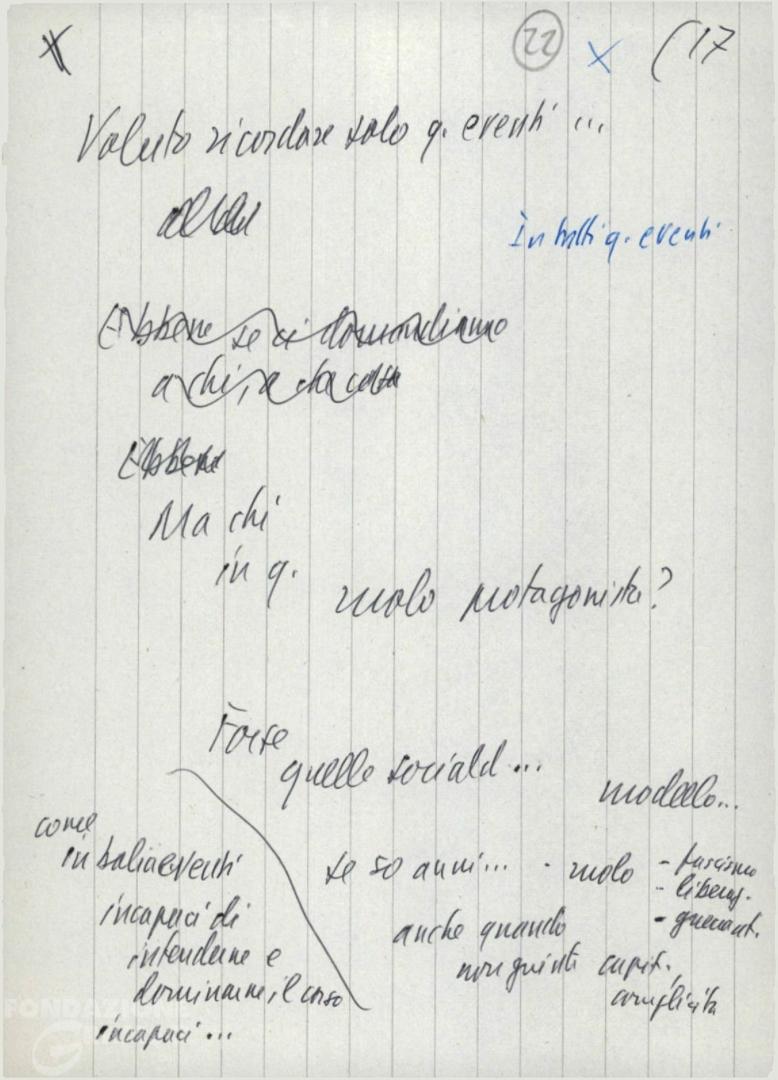 22 x (17
Voluto ricordare solo q. eventi ...
In tutti q. eventi
Ebbene se ci domandiamo
a chi, a che cosa
Ebbene
Ma chi
in q.
ruolo protagonista?
Forse
quelle sociald...
modello...
come
in balia eventi
se 50 anni... - ruolo - fascismo
- liberaz.
- guerra ant.
incapaci di
intenderne e
dominarne il corso
incapaci...
anche quando
non giunti capit.,
complicità
FONDAZIONE